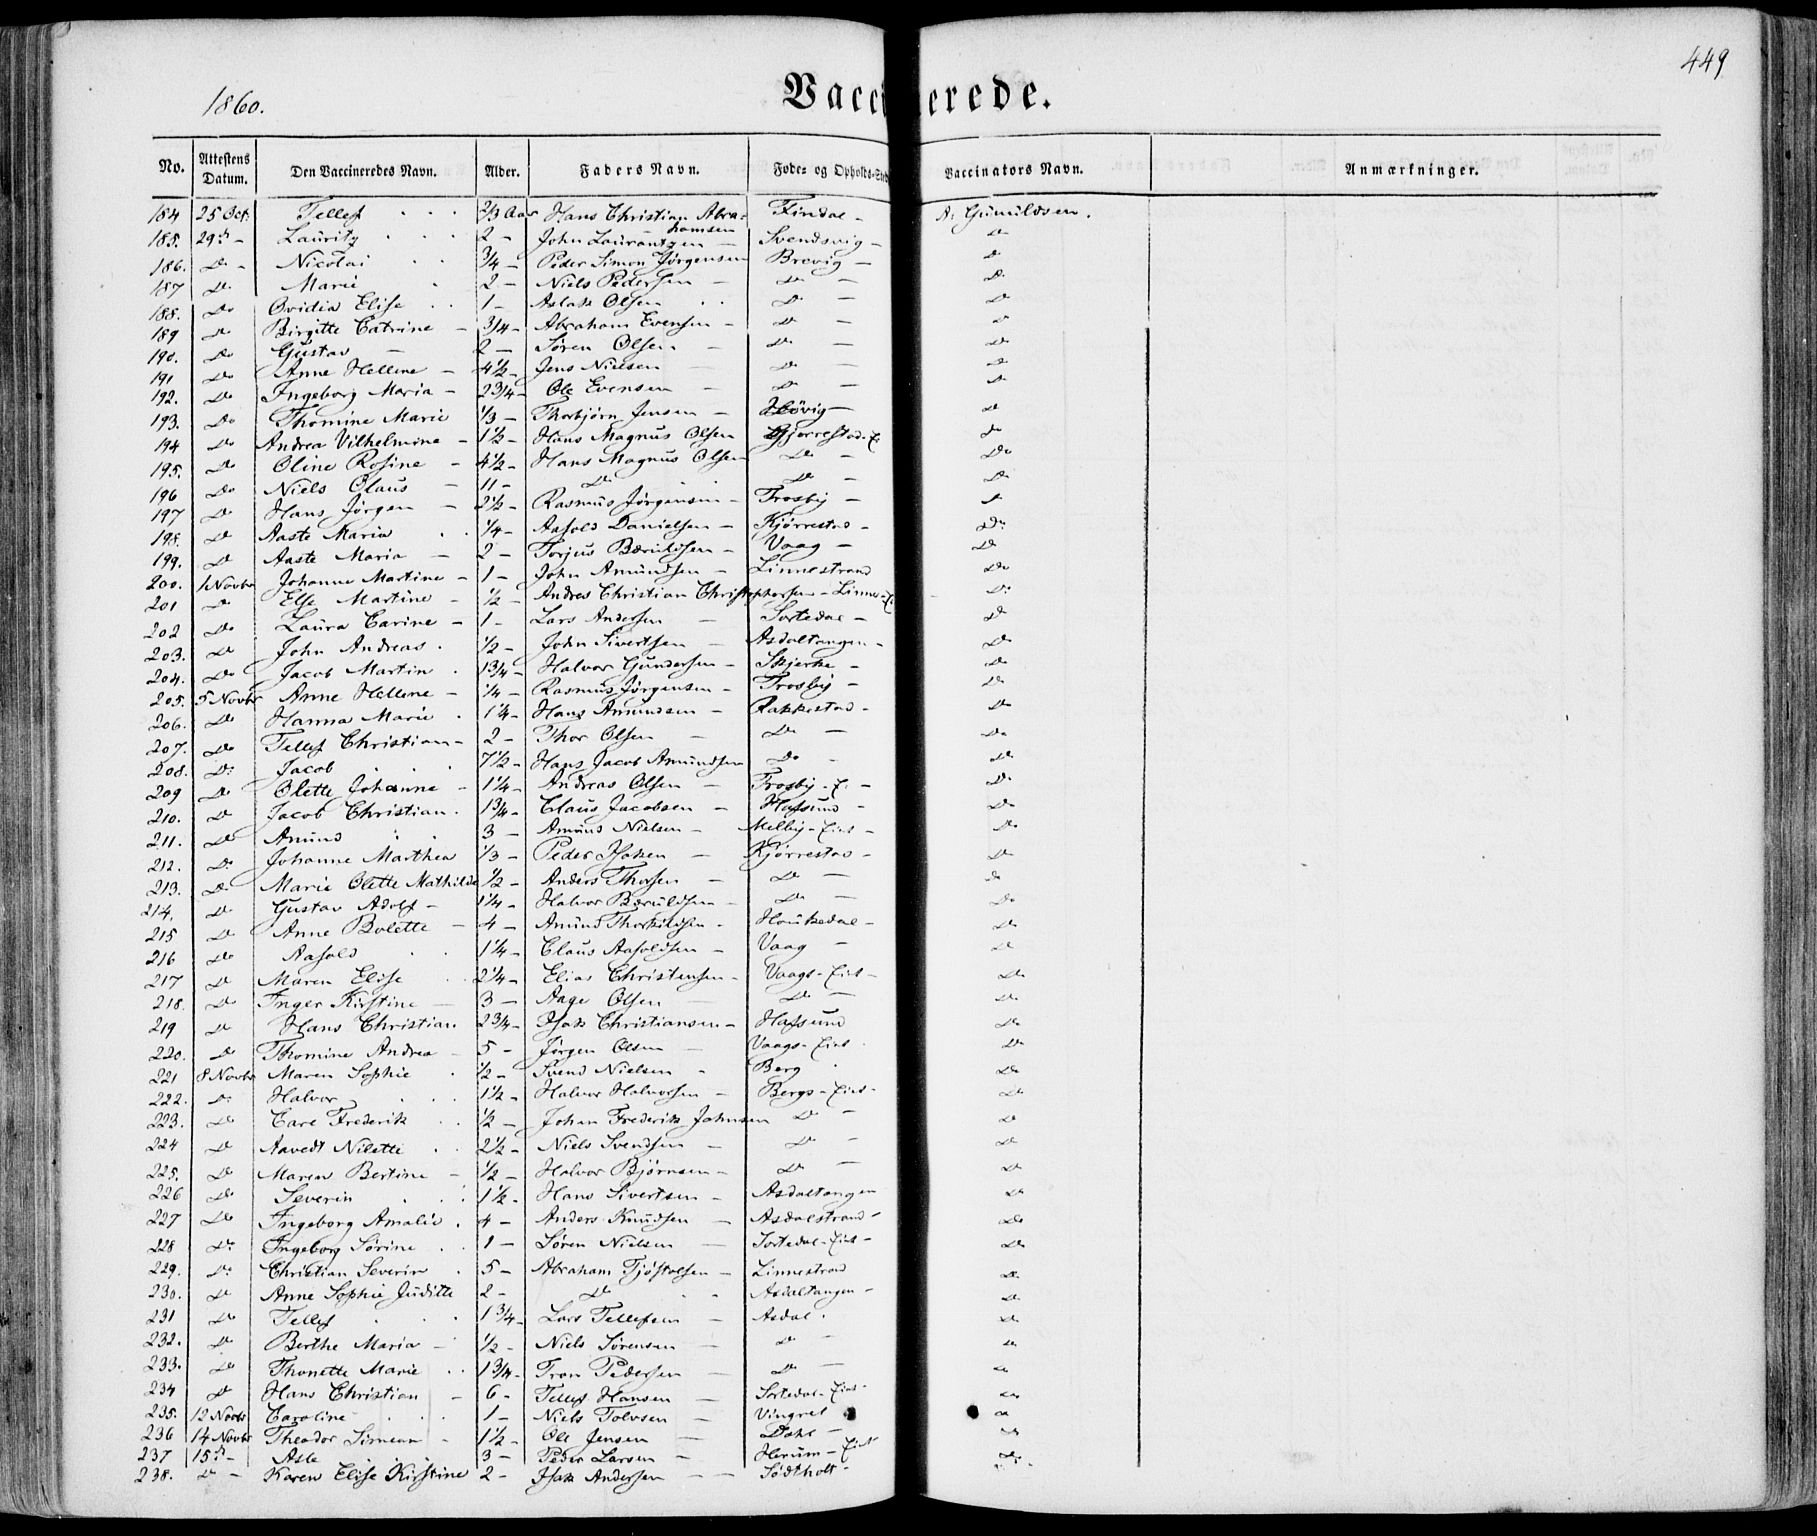 449
1860. Vaccinerede.
No. Attestens Datum. Den Vaccineredes Navn. Alder. Faders Navn. Føde- og Opholds-Sted Vaccinators Navn. Anmærkninger.
184 25 Oct: Tellef 2/3 Aar Hans Christian Abra= Findal – A: Gunuldsen.
hamsen
185. 29de – Lauritz 2 – John Laurantzen – Svendsvig – Do
186. Do – Nicolai 3/4 – Peder Simon Jørgensen Brevig – Do
187 Do Marie 2 – Niels Pedersen – Do – Do
188. Do Ovidia Elise 1 – Aslak Olsen Do – Do
189 Do Birgitte Catrine – 3/4 – Abraham Evensen – Do – Do
190. Do Gustav – 2 – Søren Olsen – Do – Do
191 Do Anne Hellene – 4 1/2 – Jens Nielsen – Do – Do
192. Do Ingeborg Maria – 2 3/4 – Ole Evensen – Do – Do
193. Do Thomine Marie 1/3 – Thorbjørn Jensen – Høvig – Do
194 Do Andrea Vilhelmine – 1 1/2 – Hans Magnus Olsen Gjerrestad-E Do
195. Do Oline Rosine – 4 1/2 – Hans Magnus Olsen Do – Do
196 Do Niels Olaus – 11 – Do Do – Do
197 Do Hans Jørgen – 2 1/2 – Rasmus Jørgensen – Trosby – Do
198. Do Aaste Maria 1/4 – Aasold Danielsen – Kjørrestad – Do
199. Do Aaste Maria – 2 – Torjus Bæruldsen – Vaag – Do
200. 1 Novbr Johanne Martine – 1 – John Amundsen – Linnestrand Do
201 Do Else Martine – 1/2 – Andres Christian Christophersen – Linnes-E Do
202 Do Laura Carine – 1 – Lars Andersen – Sortedal – Do
203. Do John Andreas 1/2 – John Sivertsen – Asdaltangen – Do
204. Do Jacob Martin 1 3/4 – Halvor Gundersen – Skjerke – Do
205. 5 Novbr Anne Hellene – 1/4 – Rasmus Jørgensen – Trosby – Do
206. Do Hanna Marie 1 1/4 – Hans Amundsen – Rakkestad – Do
207. Do Tellef Christian – 2 – Thor Olsen – Do – Do
208. Do Jacob 7 1/2 – Hans Jacob Amundsen Do – Do
209 Do Olette Johanne – 1 1/4 – Andreas Olsen – Trosby-E. – Do
210. Do Jacob Christian 1 3/4 – Claus Jacobsen – Hafsund – Do
211. Do Amund 3 – Amund Nielsen – Melby-Eiet – Do
212. Do Johanne Marthea 1/3 – Peder Isaksen – Kjørrestad – Do
213. Do Marie Olette Mathilde 1/2 – Anders Thorsen – Do – Do
214. Do Gustav Adolf – 1 1/4 – Halvor Bæruldsen – Do – Do
215 Do Anne Bolette – 4 – Amund Thorkildsen – Haukedal – Do
216 Do Aasold 1 1/4 – Claus Aasoldsen – Vaag – Do
217 Do Maren Elise 2 1/4 – Elias Christensen – Vaags-Eiet – Do
218. Do Inger Kirstine – 3 – Aage Olsen – Do – Do
219 Do Hans Christian 2 3/4 – Isak Christiansen – Hafsund Do
220. Do Thomine Andrea – 5 – Jørgen Olsen – Vaags-Eiet Do
221 8 Novbr Maren Sophie 1/2 – Svend Nielsen – Berg Do
222. Do Halvor 1 1/2 – Halvor Halvorsen – Bergs-Eiet Do
223. Do Carl Frederik 1/2 – Johan Frederik Johnsen Do – Do
224 Do Aavedt Nilette 2 1/2 – Niels Svendsen – Do – Do
225. Do Maren Bertine – 1/2 – Halvor Bjørnsen – Do – Do
226 Do Severin 1 1/2 – Hans Sivertsen – Asdaltangen Do
227 Do Ingeborg Amalie 4 – Anders Knudsen – Asdalstrand – Do
228 Do Ingeborg Sørine 1 – Søren Nielsen – Sortedal-Eiet – Do
229. Do Christian Severin 5 – Abraham Tjøstolsen – Linnestrand Do
230. Do Anne Sophie Juditte 2 – Do Asdaltangen – Do
231 Do Tellef 1 3/4 – Lars Tellefsen – Asdal. Do
232. Do Berthe Maria – 1/2 – Niels Sørensen – Do – Do
233. Do Thonette Marie 1 3/4 – Tron Pedersen – Do – Do
234 Do Hans Christian – 6 – Tellef Hansen – Sortedal-Eiet – Do
235. 12 Novbr Caroline 1 – Niels Tolvsen – Vingrel Do
236 14 Novbr Theodor Simean – 1 1/2 – Ole Jensen – Dahl – Do
237 15de – Asle 3 – Peder Larsen – Herum-Eiet Do
238. Do – Karen Elise Kirstine 2 – Isak Andersen – Södtholt – Do